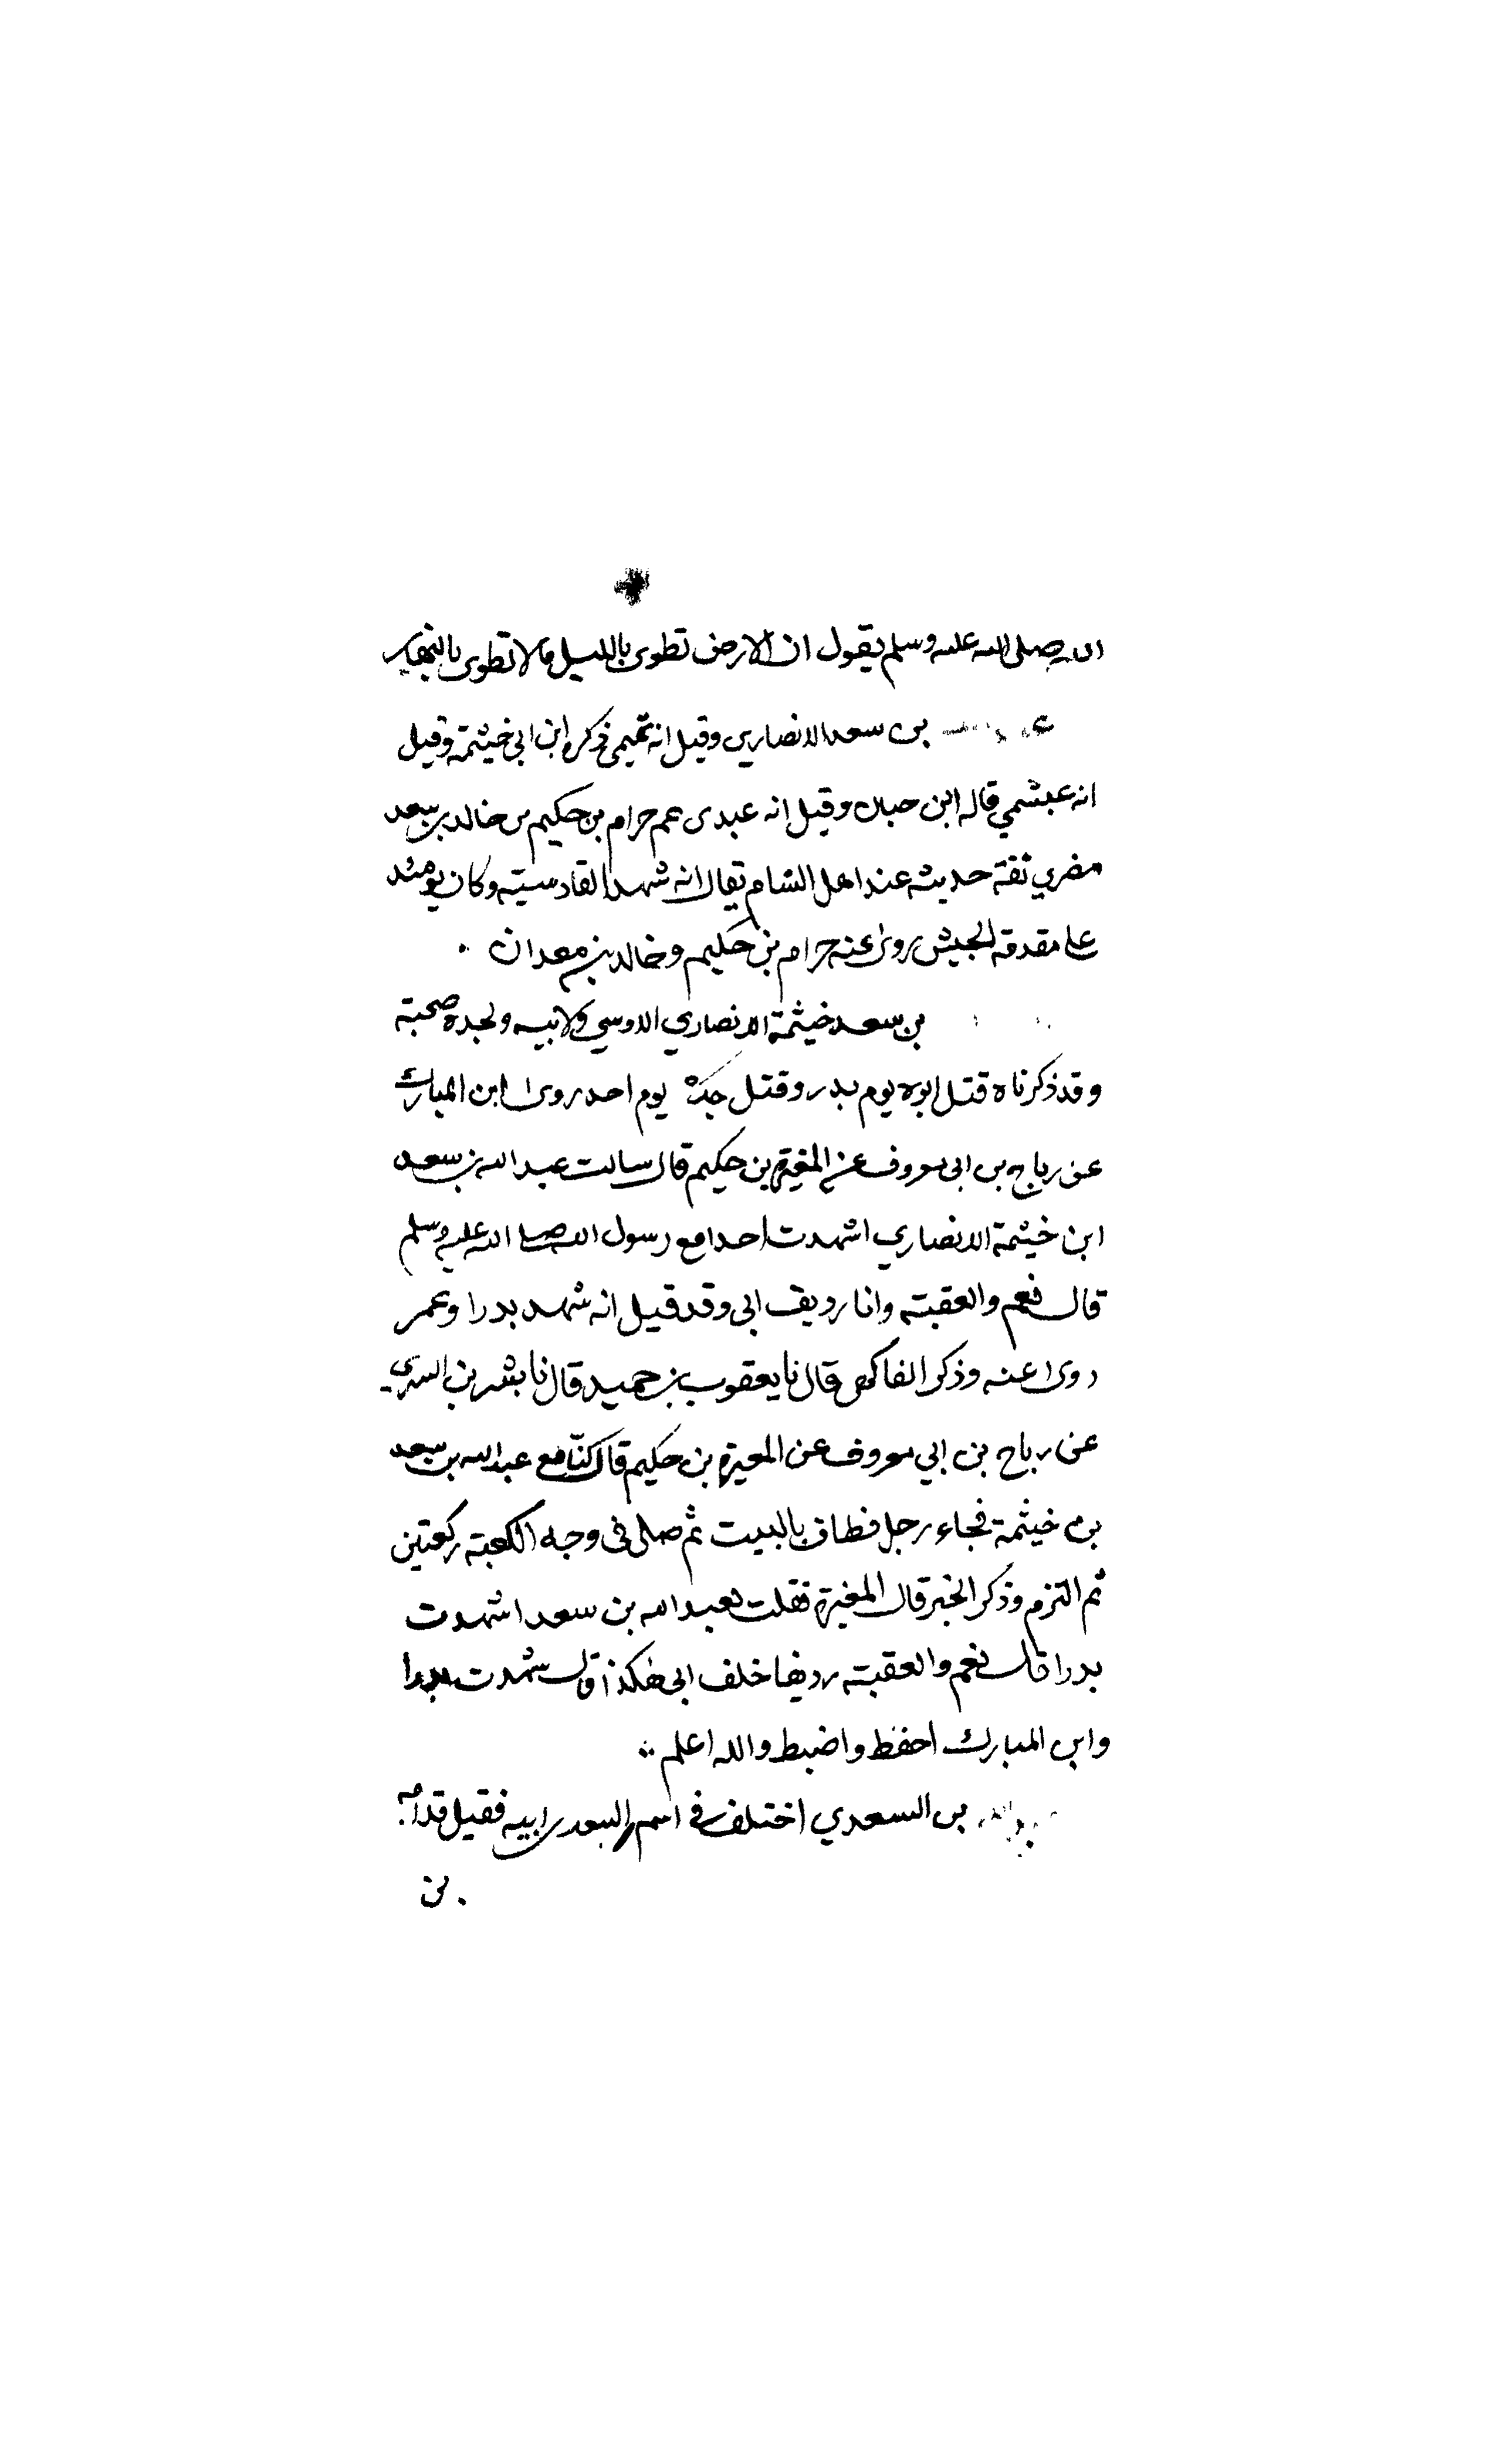 الله صلى الله عليه وسلم يقول ان الارض تطوى بالليل مالا تطوى بالنهار
بن سعد الانصاري وقيل انه تميمي ذكره ابن ابي خيثمة وقيل
انه عبشمي قاله ابن حبان وقيل انه عبدى عم حرام بن حكيم بن خالد بن سعد
مضري ثقة حديثه عند اهل الشام يقال انه شهد القادسية وكان يومئذ
على مقدمة الجيش روى عنه حرام بن حكيم وخالد بن معدان
بن سعد خيثمة الانصاري الاوسي ولابيه ولجده صحبة
وقد ذكرناه قتل ابوه يوم بدر وقتل جده يوم احد روى ابن المبارك
عن رباح بن ابى معروف عن المغيرة بن حكيم قال سالت عبد الله بن سعد
ابن خيثمة الانصاري اشهدت احدا مع رسول الله صلى الله عليه وسلم
قال نعم والعقبة وانا رديف ابى وقد قيل انه شهد بدرا وعمر
روى عنه وذكر الفاكهى قال نا يعقوب بن حميد قال نا بشر بن السري
عن رباح بن ابي معروف عن المغيرة بن حكيم قال كنّا مع عبد الله بن سعد
بن خيثمة فجاء رجل فطاف بالبيت ثم صلى فى وجه الكعبة ركعتين
ثم التزم وذكر الخبر قال المغيرة فقلت لعبد الله بن سعد اشهدت
بدرا قال نعم والعقبة رديفا خلف ابى هكذا قال شهدت بدرا
وابن المبارك احفظ واضبط والله اعلم
بن السعدي اختلف في اسم السعدى ابيه فقيل قدامة
بن